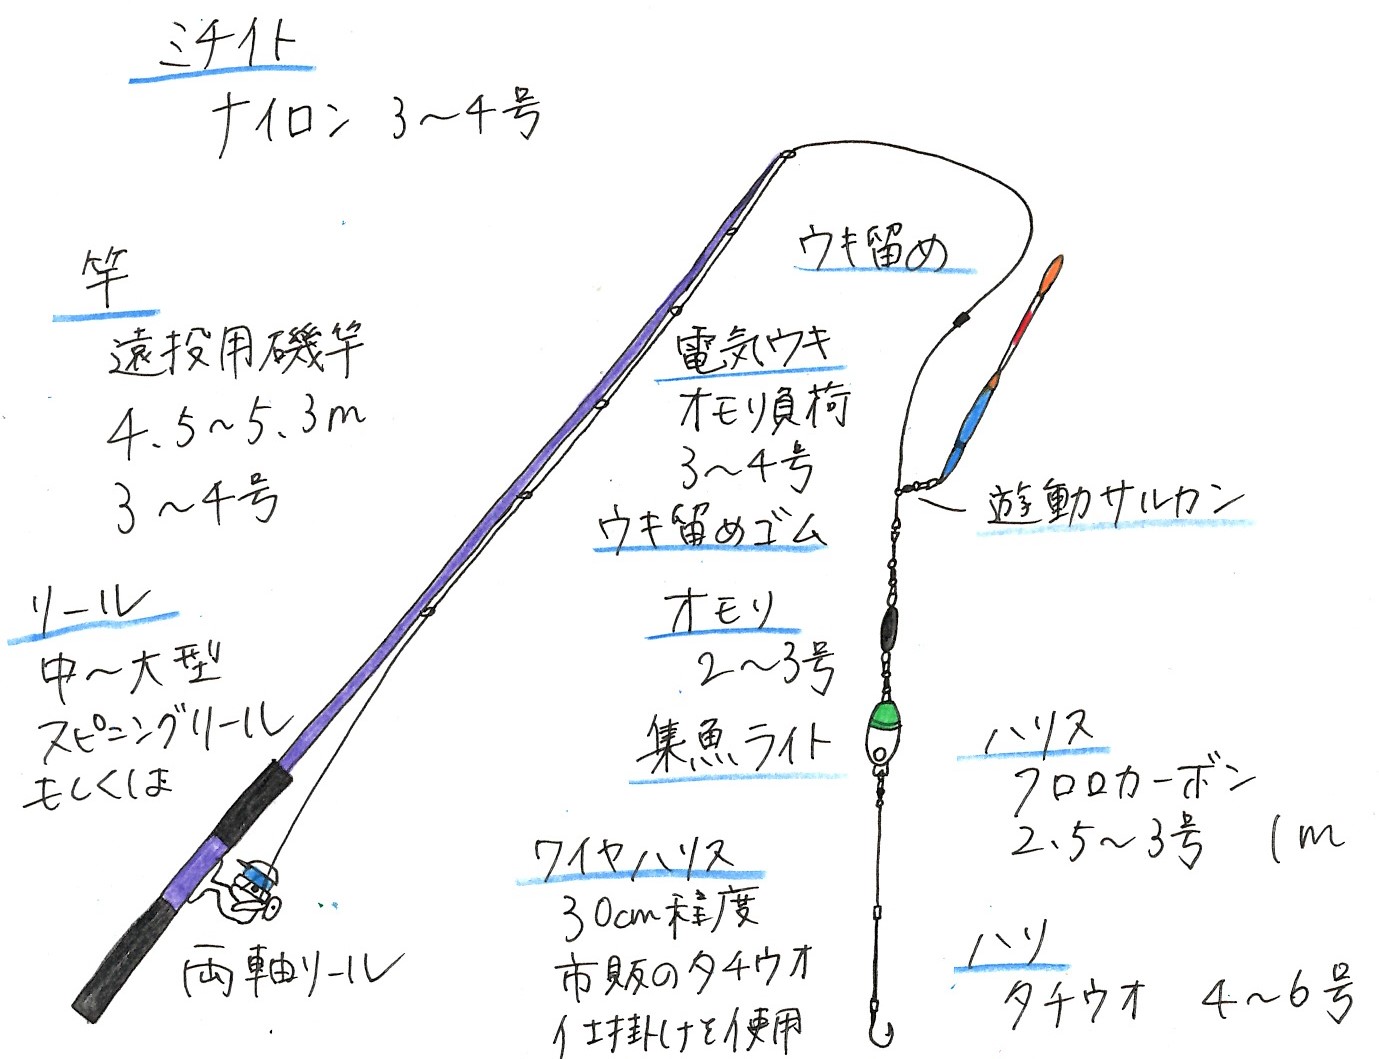 ミチイト
ナイロン 3〜4号
竿
遠投用磯竿
4.5〜5.3m
3〜4号
リール
中〜大型
スピニングリール
もしくは
両軸リール
ウキ留め
電気ウキ
オモリ負荷
3〜4号
ウキ留めゴム
遊動サルカン
オモリ
2〜3号
集魚ライト
ハリス
フロロカーボン
2.5〜3号 1m
ワイヤハリス
30cm程度
市販のタチウオ
仕掛けを使用
ハリ
タチウオ 4〜6号